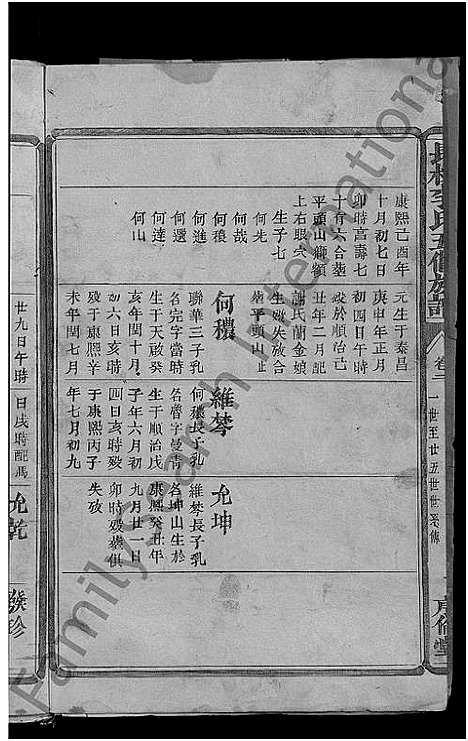 長橋李氏五修族譜
卷二 一世至廿五世世系傳
序倫堂
康熙己酉年
十月初七日
卯時享壽七
十有六合葬
平頭山獅額
上右眼穴
生子七
何先
何哉
何穠
何進
何選
何達
何山
元生于泰昌
庚申年正月
初四日午時
歿於順治己
丑年二月記
蕭氏蘭金娘
生歿失放合
葬平頭山
何穠
聯華三子乳
名完字當時
生于天啟癸
亥年閏十月
初六日亥時
歿于康熙辛
未年閏七月
維棽
何穠長子乳
名魯字曼青
生于順治戊
子年六月初
四日亥時歿
于康熙丙子
年七月初九
允坤
維棽長子乳
名坤山生於
康熙癸丑年
九月廿一日
卯時歿葬俱
失攷
廿九日午時
日戌時配馮
允乾
發珍
Family Search International